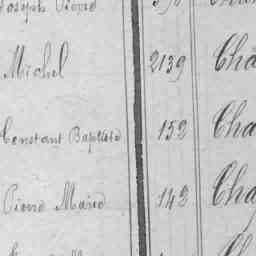 Joseph Pierre
Michel 2139 Châ
Constant Baptiste 152 Cha
Pierre Marie 142 Cha